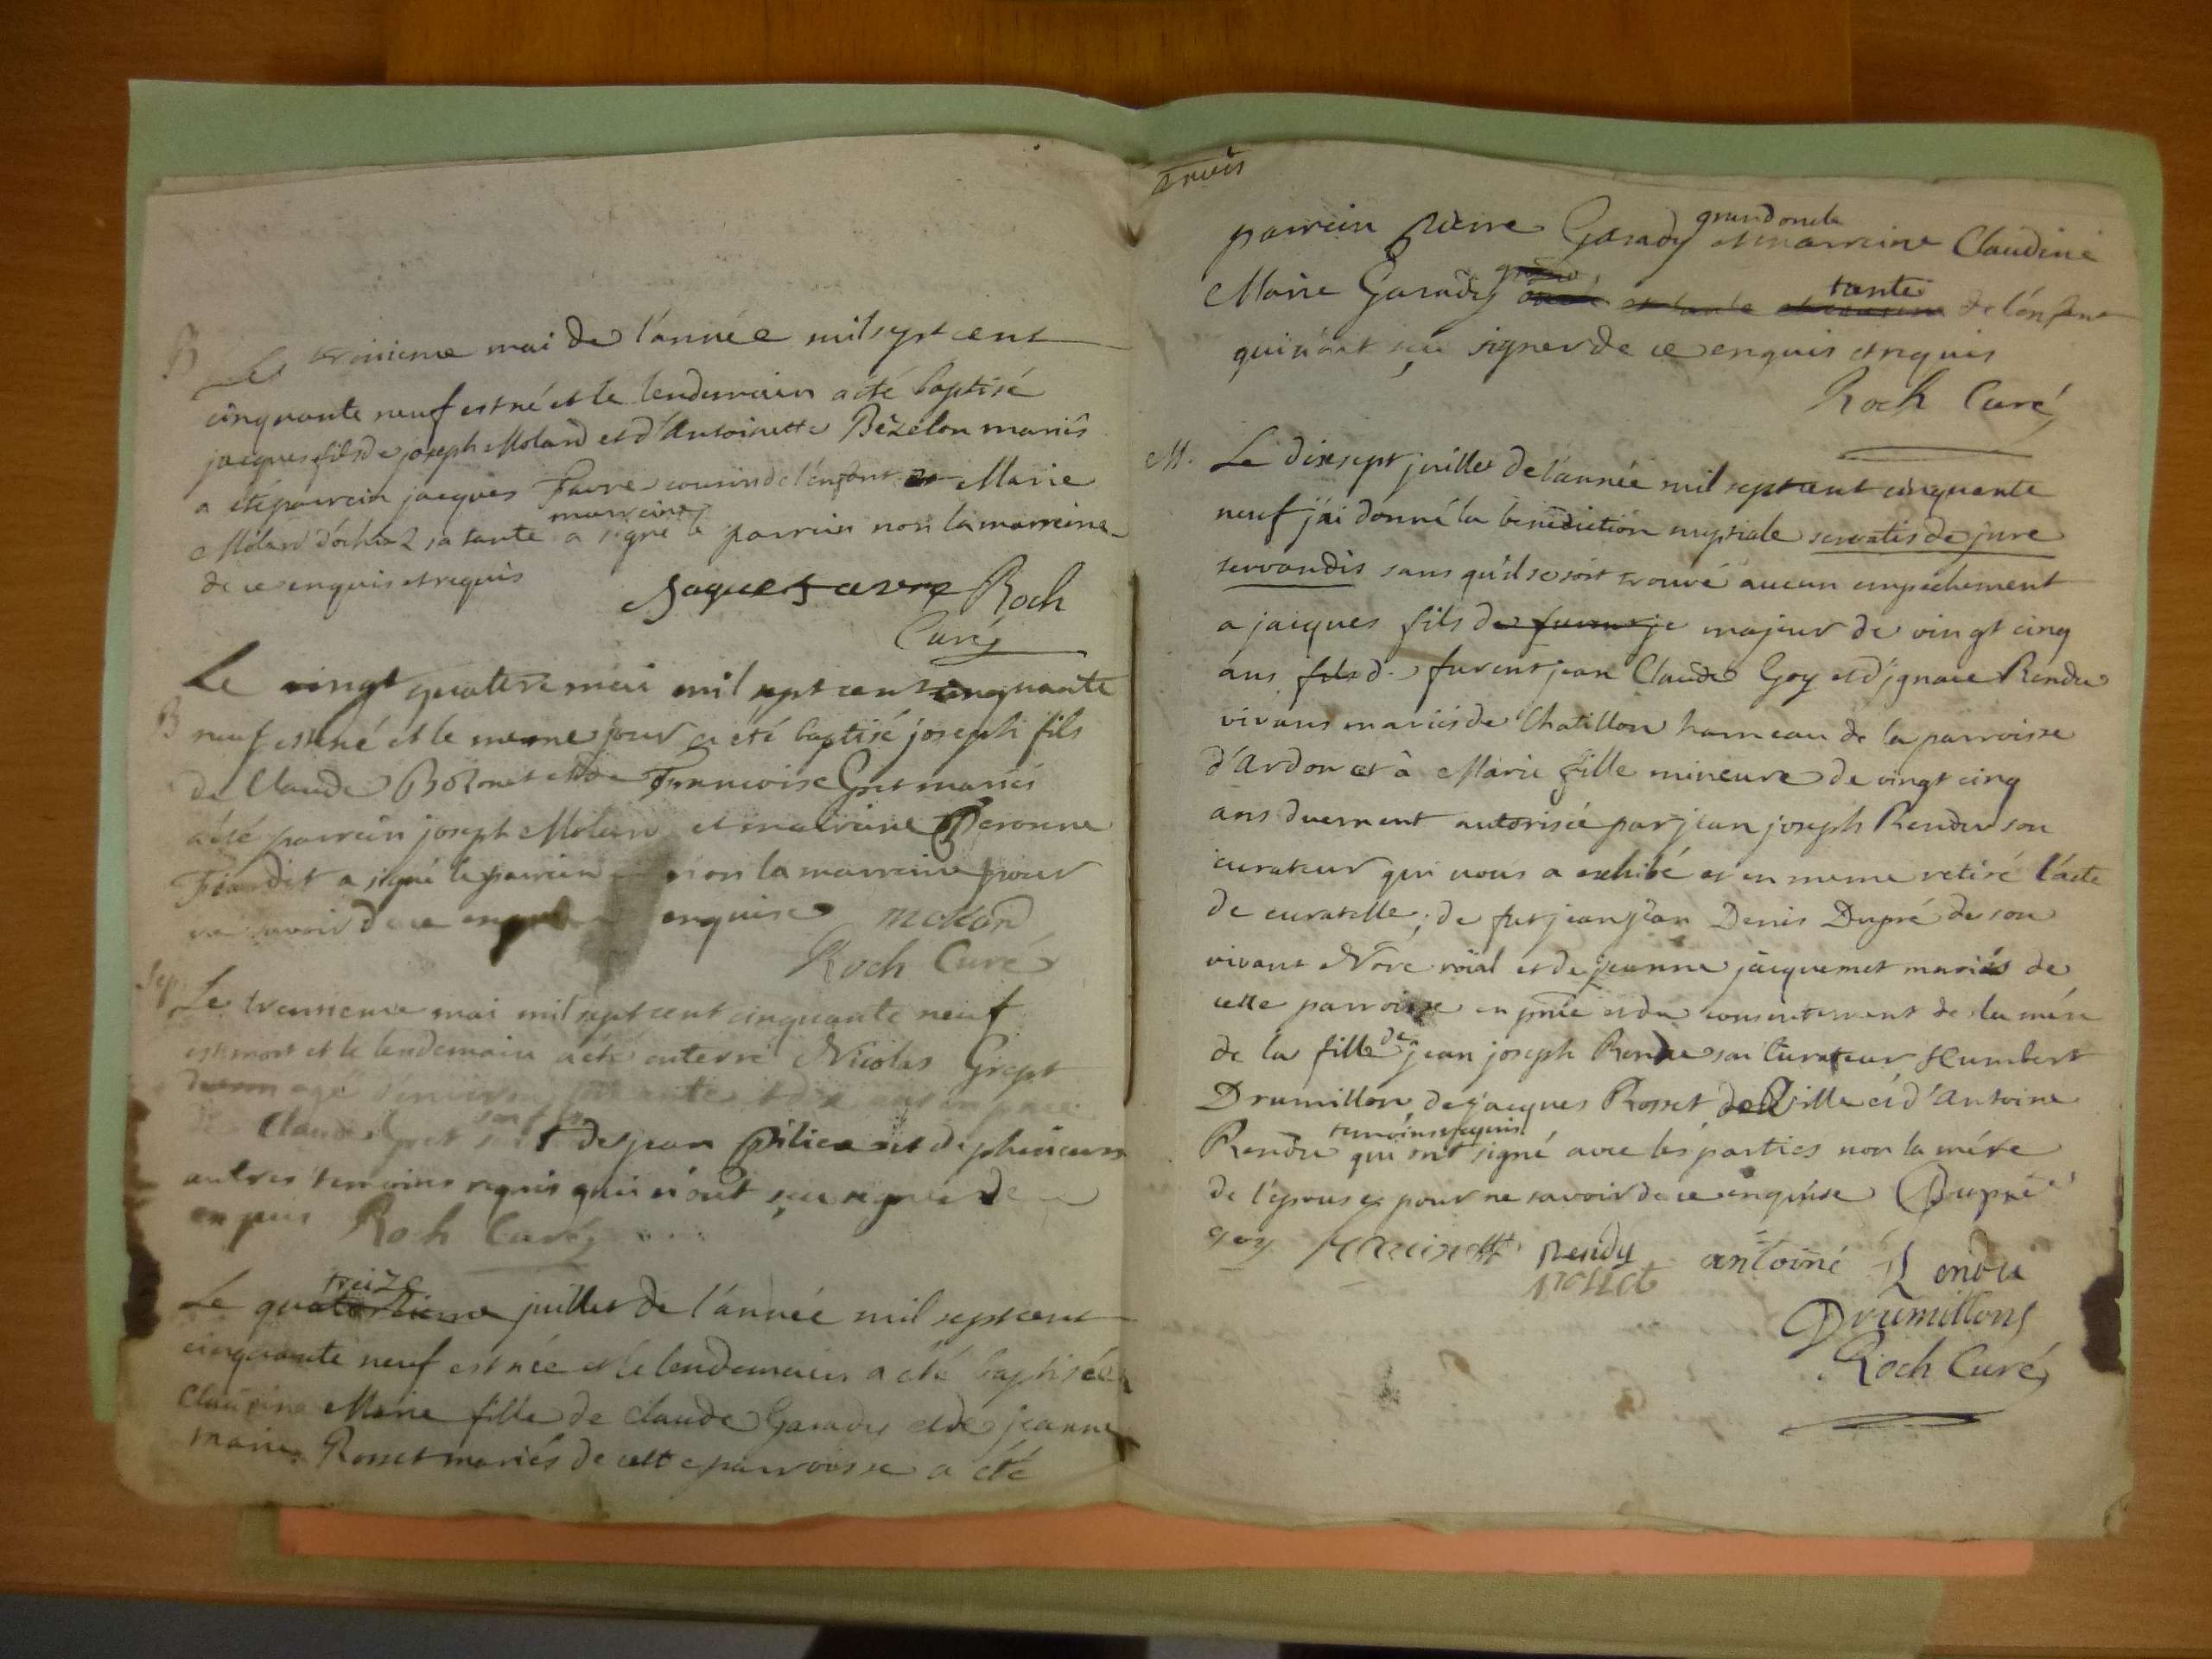 B Le troisieme mai de l'année mil sept cent
cinquante neuf est né et le lendemain a été baptisé
jacques fils de joseph Moland et d'Antoinette Bèzelon mariés
a été parrein jacques Favre cousin de l'enfant et Marie
marreine
Moland sa tante a signé le parrein non la marreine
de ce enquis et requis
Jaque Favre Roch
Curé
Le vingt quatre mai mil sept cent cinquante
B neuf est né et le meme jour a été baptisé joseph fils
de Claude et de Francoise Gret mariés
a été parrein joseph Molan et marreine Peronne
a signé le parrein non la marreine pour
ne savoir de ce enquise molland
Roch Curé
Sep. Le trensieme mai mil sept cent cinquante neuf
est mort et le lendemain a été enterré Nicolas Grept
agé d'environ
Claude de jean et de plusieurs
autres temoins requis qui n'ont sçu signer de ce
enquis Roch Curé
treize
Le quatorzieme juillet de l'année mil sept cent
cinquante neuf est née et le lendemain a été baptisée
Claudine Marie fille de claude Garady et de jeanne
marie Rosset mariés de cette parroisse a été
parrein pierre Garady grand oncle et marreine Claudine
Marie Garady tante de l'enfant
qui n'ont sçu signer de ce enquis et requis
Roch Curé
M. Le dixsept juillet de l'année mil sept cent cinquante
neuf j'ai donné la benediction nuptiale servatis de jure
servandis sans qu'il se soit trouvé aucun empechement
a jacques fils de majeur de vingt cinq
ans fils d. furent jean Claude Goy et d'ignace Rendu
vivans mariés de Chatillon hameau de la parroisse
d'Ardon et à Marie fille mineure de vingt cinq
ans duement autorisée par jean joseph Rendu son
curateur qui nous a exhibé et en meme retiré l'acte
de curatelle; de fut jean jean Denis Dupré de son
vivant Nore roial et de jeanne jacquemet mariés de
cette parroisse en pnce et du consentement de la mére
de la fille de jean joseph Rendu son Curateur Humbert
Drumillon, de jacques Rosset de Ville et d'Antoine
temoins requis
Rendu qui ont signé avec les parties non la mére
de l'épouse pour ne savoir de ce enquise Dupré
goy Rendu antoine Rendu
rosset
Drumillons
Roch Curé